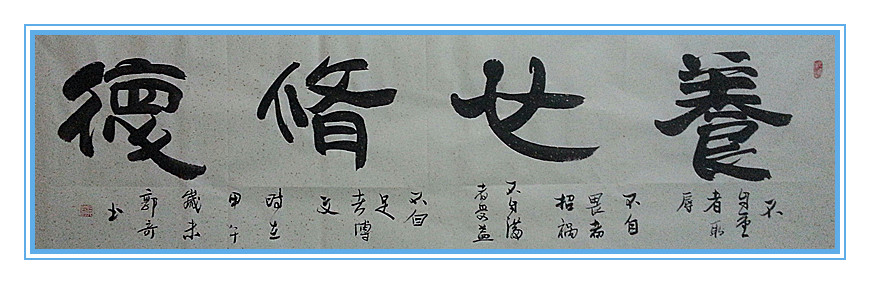 養心脩德
不
自重
者取
辱
不自
畏者
招禍
不自滿
者受益
不自
足
者博
文
时在
甲午
歲末
郭奇
书